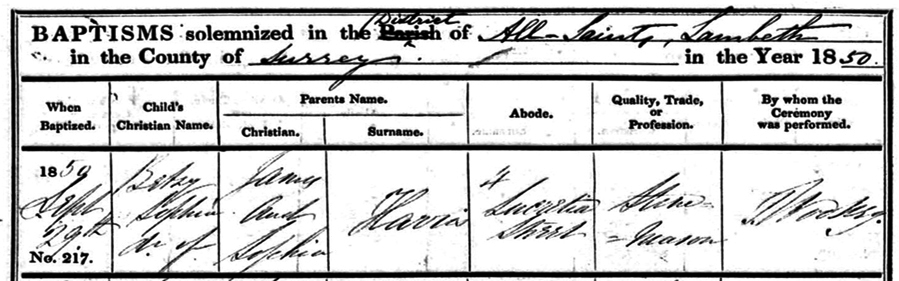 BAPTISMS solemnized in the District Parish of All-Saints, Lambeth
in the County of Surrey in the Year 1850.
When Baptized. Child's Christian Name. Parents Name. Abode. Quality, Trade, or Profession. By whom the Ceremony was performed.
Christian. Surname.
1850 Betsy James 4
Sept Sophia and Harris Lucretia Stone=
29th dr. of Sophia Street =mason
No. 217.